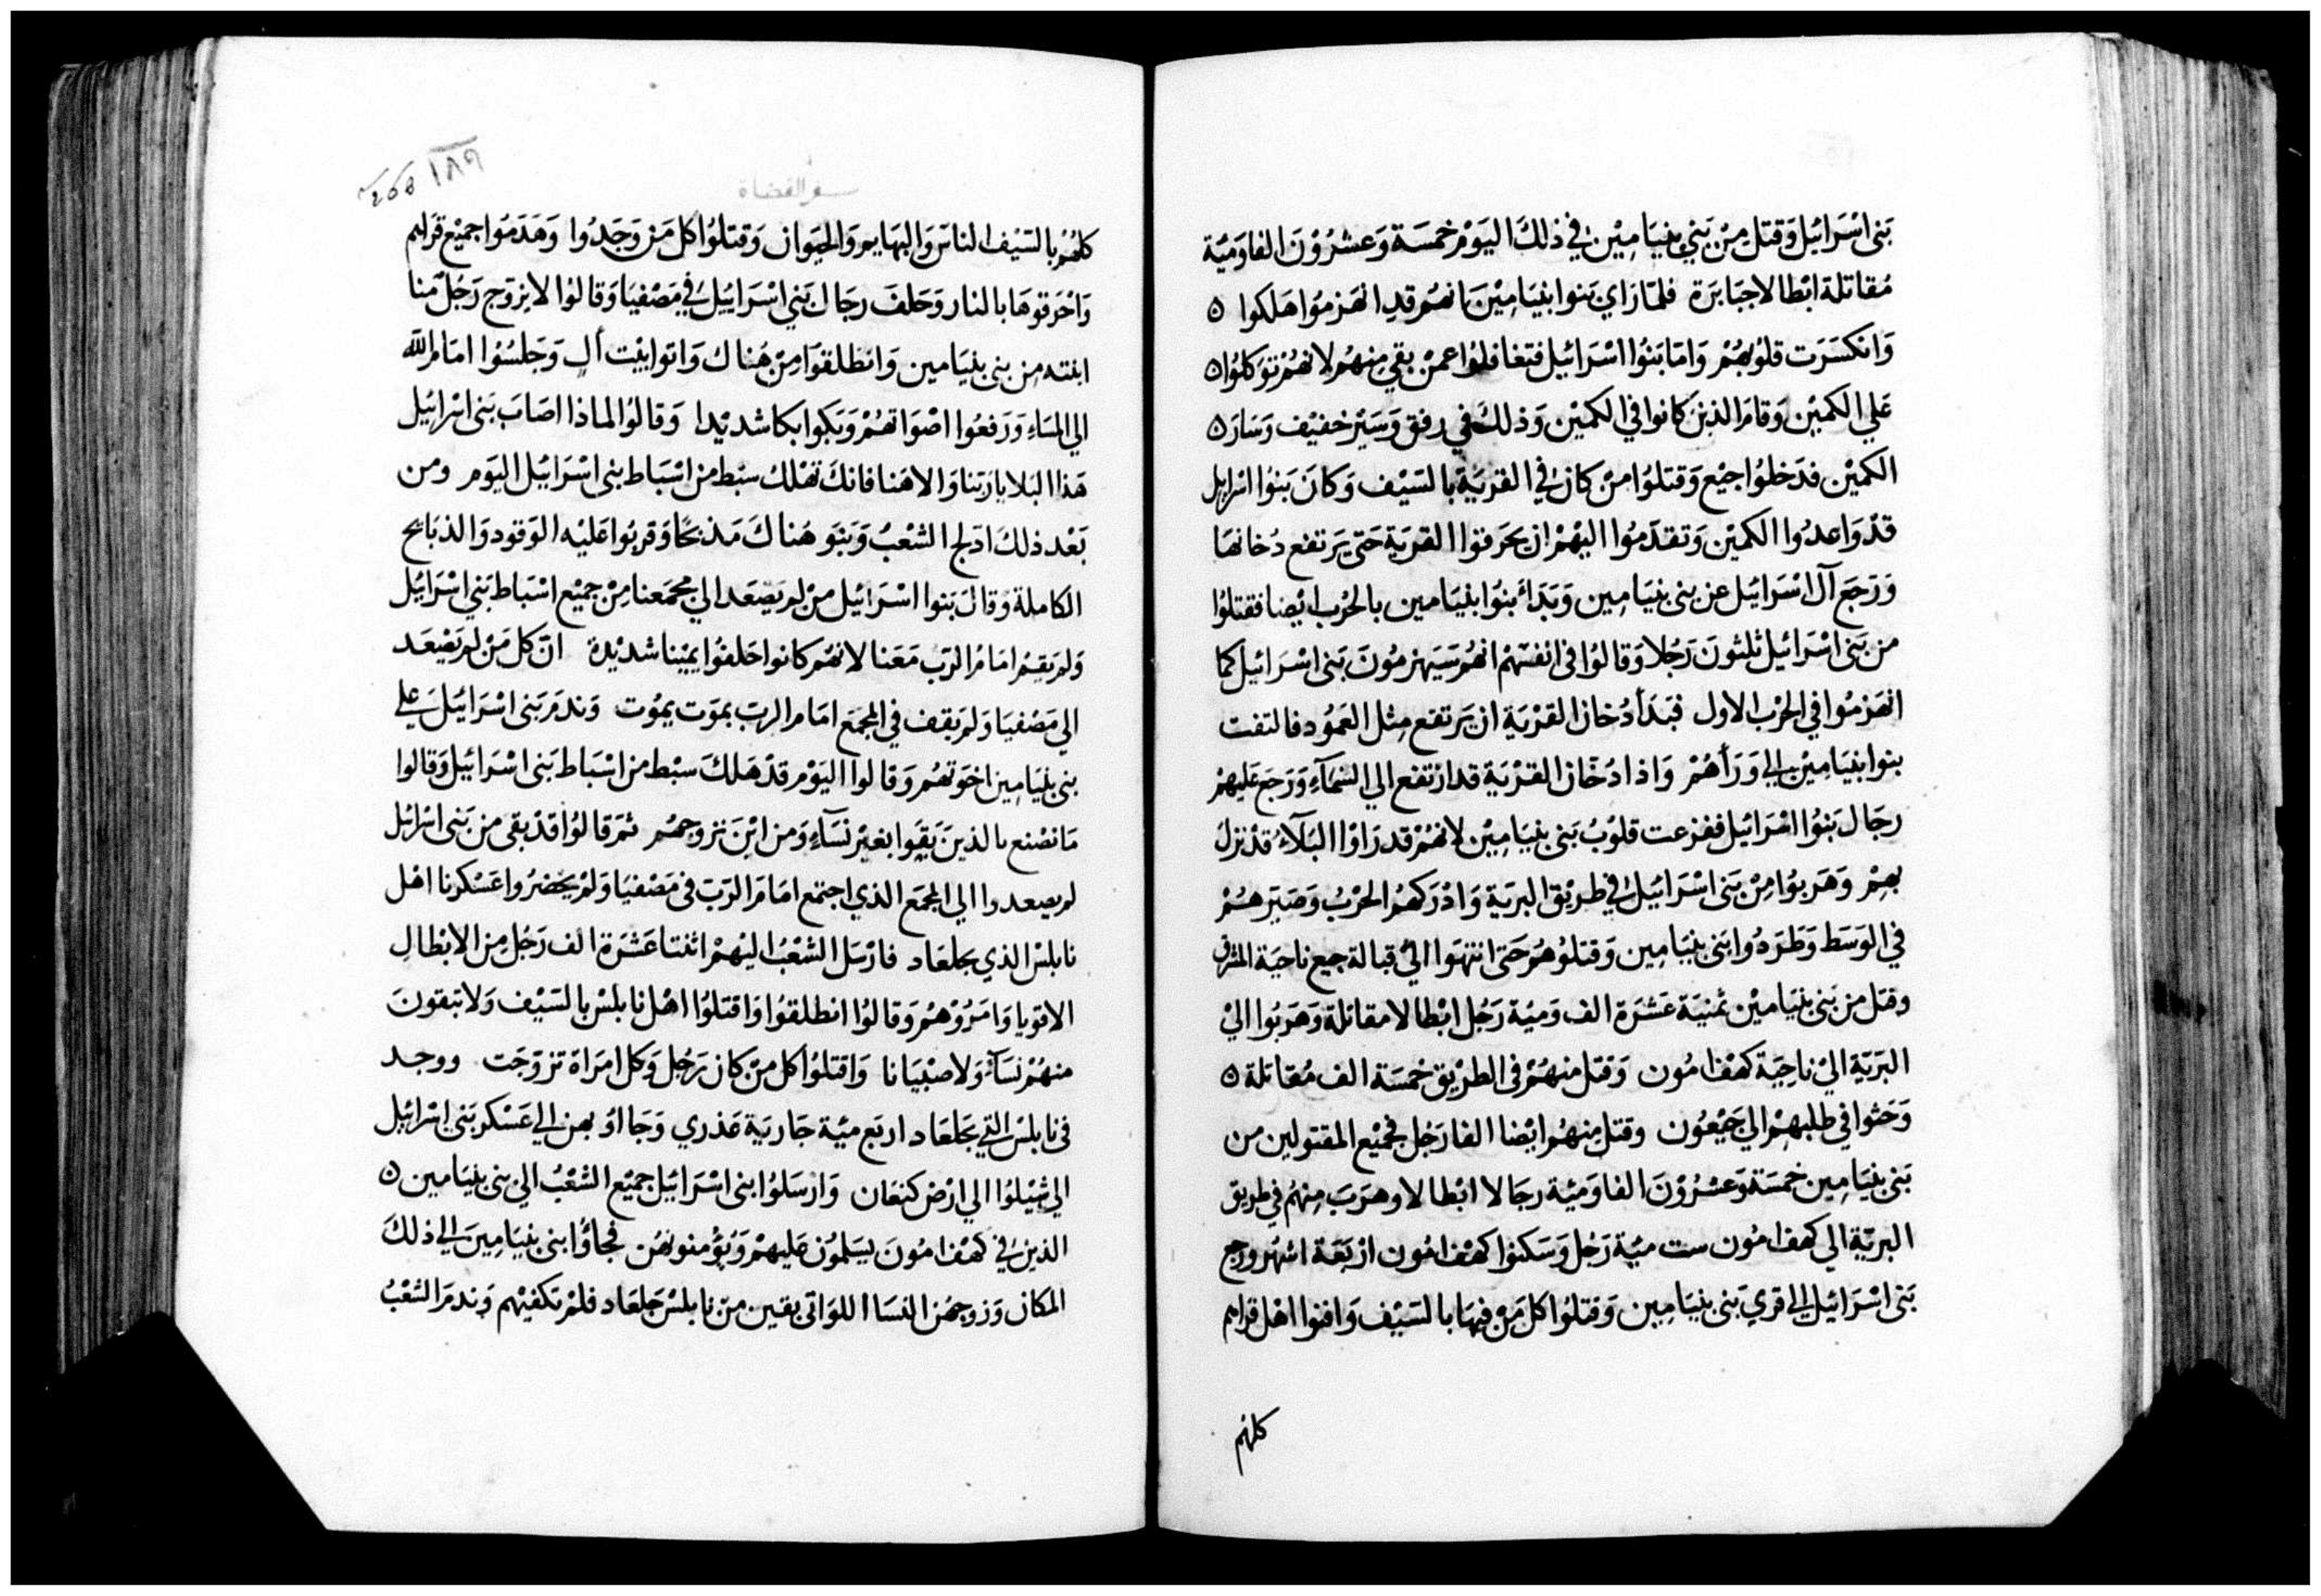 بَني اسْرَائيل وَقتل مِنْ بَني بنيَامِيْن في ذلكَ اليَوْم خمسَة وَعشرُوْنَ الفا وَميّة
مُقاتلة ابْطالا جبَابرَة فلمّا رَاي بَنوا بنيَامِيْن انهُم قد انهَزمُوا هَلكوا ه
وَانكسَرَت قلوُبهُمْ وَامَا بَنوُا اسْرَائيل فتغَافلوُا عمنْ بقي منهُم لانهُمْ توَكلوُا ه
عَلي الكميْن وَقامَ الذينَ كانوا في الكميْن وَذلكَ في رفق وَسَيْر خفيْف وَسَارَ ه
الكميْن فدَخلوُا جميْع وَقتلوُا منْ كان في القريَة بالسَيْف وَكانَ بَنوُا اسْرايل
قدْ وَاعدُوا الكميْن وَتقدّمُوا اليْهمْ ان يحَرقوا القريَة حَتى يَرتفع دُخانهَا
وَرَجَعَ آل اسْرَائيل عن بنى بنيَامين وَبَدَأ بنوُا بنيَامين بالحْرب ايْضا فقتلوُا
من بَنى اسْرَائيل ثلثونَ رَجُلا وَقالوُا فى انفسَهمْ انهُم سَيَهزمُونَ بَنى اسْرَائيل كما
انهَزمُوا في الحرْب الاول فبَدَأ دُخان القرْيَة ان يَرتفع مِثل العَمُود فالتفت
بنوا بنيَامِيْن الي وَرَأهُمْ وَاذا دُخَان القرْيَة قد ارْتفع الي السَمَآءِ وَرَجَع عَليهمْ
رجَال بَنوُا اسْرَائيل ففزعت قلوْبُ بَنى بنيَامِيْن لانهُمْ قد رَاوْا البَلآء قدْ نزلَ
بهمْ وَهَربوُا مِنْ بَنى اسْرَائيل في طريْق البريَة وَادْرَكهُم الحرْبُ وَصَيّرهمُمْ
في الوَسَط وَطَرَدُوا بَنى بنيَامِين وَقتلوُهُم حَتى انتهَوا الىْ قبَالة جبع ناحيَة المشرق
وقتل من بَنى بنيَاميْن ثمنيَة عَشرَة الف وَميّة رَجُل ابْطالا مقاتلة وَهَربُوا اليْ
البَريّة اليْ ناحِيَة كهْف امُون وَقتل منهُمْ فى الطريْق خمْسَة الف مُقاتلة ه
وَحَثوا في طلبهمْ الي جَبْعُون وقتل مِنهُم ايْضا الفا رَجُل فجميْع المقتولين من
بَنى بنيَامِين خمسَة وَعشْرُوْنَ الفا وَميّة رجَالا ابْطالا وهَرَبَ مِنهُم في طريق
البريّة الي كهف امُون ست ميّة رَجُل وَسَكنوا كهْف امُون ارْبَعَة اشهُر ورجع
بَنى اسْرَائيل الى قري بَنى بنيَامِين وَقتلوُا كل مَنْ فيهَا بالسَيْف وَافنوا اهْل قراهم
كلهم
١٨٩
سفر القضاة
كلهُمْ بالسَيْف الناسَ وَالبهَايم وَالحيَوان وَقتلوُا كل مَن وَجَدُوا وَهَدَمُوا جميْع قرَاهم
وَاحْرَقوهَا بالنار وَحَلفَ رجَال بَني اسْرَائيل في مَصْفيَا وَقالوُا لا يزوّج رَجُل منا
ابنته من بنى بنيَامين وَانطلقوَا مِنْ هُناك وَاتوا بيْت أل وَجَلسُوُا امَام الله
الي المسَاءِ وَرَفعُوا اصْوَاتهُمْ وَبَكوا بكا شديْدا وَقالوُا لماذا اصَابَ بَنى اسْرائيل
هَذا البَلا يارَبنا وَالاهَنا فانكَ تهْلك سبْط من اسْبَاط بنى اسْرَائيل اليَوم ومن
بَعْد ذلكَ ادلج الشعْبُ وَبَنَو هُناكَ مَذبحًا وَقربُوا عَليْه الوَقود وَالذبَائح
الكاملة وَقالَ بَنوا اسْرَائيل منْ لم يَصْعَد الي مجْمَعنا مِنْ جميْع اسْبَاط بَني اسْرَائيل
وَلم يَقيْم امَامُ الرَب مَعَنا لانهُم كانوا حَلفوُا يميْنا شديْدة انّ كل مَنْ لم يَصْعَد
الي مَصْفيَا وَلم يَقف في المجمَع امَام الربّ بموَت يموُت وَندمَ بَنى اسْرَائيل علي
بنى بنيَامِين اخوَتهُم وَقالوا اليَوْم قدْ هَلكَ سبْط من اسْبَاط بَنى اسْرَائيل وَقالوا
مَا نصْنع بالذينَ بَقيوا بغيرْ نسَآءٍ وَمن ايْنَ نزوجهُم ثمَ قالوُا قدْ بقى من بَنى اسْرائيل
لم يصعدوا الي المجمَع الذي اجتمع امَامَ الرَبّ فى مَصْفيَا وَلمْ يحَضرُوا عَسْكرنا اهْل
نابلسْ الذي بجلعَاد فارْسَل الشعْبُ اليْهمْ اثنتا عَشرَة الف رَجُل مِن الابْطالِ
الاقويا وَامَرُوْهُم وَقالوُا انطلقوُا وَاقتلوُا اهْل نابلسْ بالسَيْف وَلا تبقونَ
منهُمْ نسَآءً وَلا صبْيَانا وَاقتلوُا كل منْ كان رَجُل وَكل امرَاة تزوّجَت ووجد
فى نابلسْ التي بجَلعَاد اربَع ميّة جَاريَة عَذري وَجَااوُ بهن الي عَسْكر بَنى اسْرائيل
الي شيْلوُا الي ارْض كنعَان وَارْسَلوُا بنى اسْرَائيل جميْع الشعْبُ الي بنى بنيَامين ه
الذين في كهْف امُونَ يسَلمُون عَليهمْ وَيُؤمنونهُن فجاؤا بنى بنيَامِينَ الي ذلكَ
المكان وَزوجهُن النسَا اللوَاتى بقين منْ نابلسْ جَلعَاد فلمْ تكفيْهم وَندمَ الشعْبُ